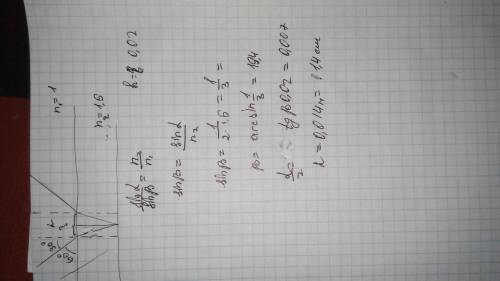 n₁ = 1
n₂ = 1,6
h = 0,02
sinα/sinβ = n₂/n₁
sinβ = sinα/n₂
sinβ = 1/(2·1,6) = 1/3 =
β = arcsin 1/3 = 19,4
L/2 = tgβ·0,02 = 0,007
L = 0,014м = 1,4 см